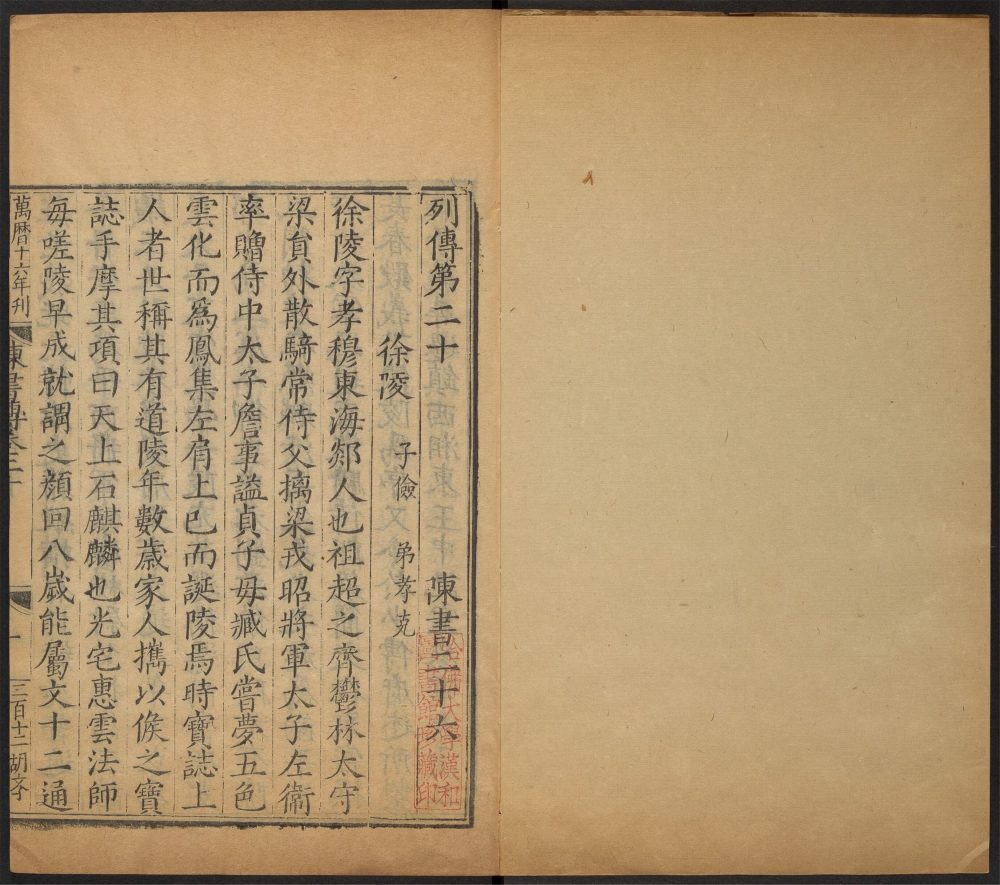 列傳第二十 陳書二十六
徐陵 子儉 弟孝克
徐陵字孝穆東海郯人也祖超之齊鬱林太守
梁貟外散騎常侍父摛梁戎昭將軍太子左衞
率贈侍中太子詹事謚貞子母臧氏嘗夢五色
雲化而爲鳳集左肩上已而誕陵焉時寶誌上
人者世稱其有道陵年數歲家人攜以候之寶
誌手摩其項曰天上石麒麟也光宅惠雲法師
每嗟陵早成就謂之顔回八歲能屬文十二通
萬曆十六年刊 陳書傳卷二十 一 三百十二 胡
哈佛大學漢和圖書館珍藏印